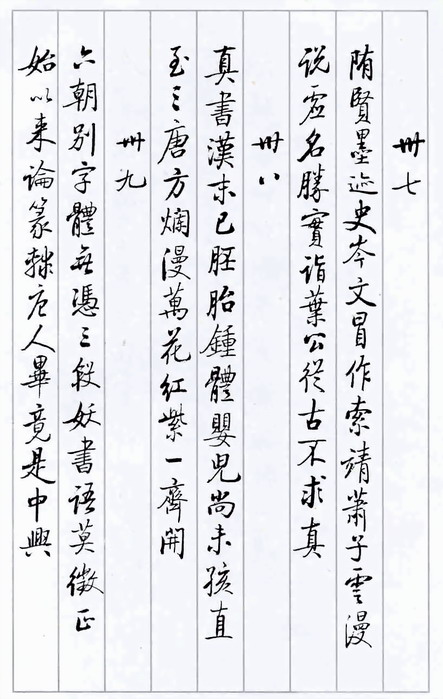 卅七
隋賢墨迹史岑文冒作索靖蕭子雲漫
说虛名勝實詣葉公從古不求真
卅八
真書漢末已胚胎鍾體嬰兒尚未孩直
至三唐方爛漫萬花紅紫一齊開
卅九
六朝别字體無憑三段妖書語莫徵正
始以来論篆隸唐人畢竟是中興